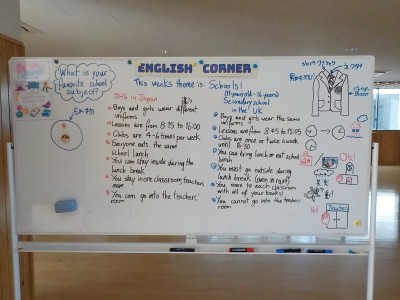 ENGLISH CORNER
This weeks theme is: Schools!
What is your
favourite school
subject?
JHS in Japan
Boys and girls wear different
uniforms
Lessons are from 8:15 to 16:00
Clubs are 4-6 times per week
Everyone eats the same
school lunch
You can stay inside during the
lunch break
You stay in one classroom, teachers
move
You can go into the teachers'
room
(11 years old - 16 years)
Secondary school
in the UK
Boys and girls wear the same
uniforms
Lessons are from 8:45 to 15:05
Clubs are once or twice a week
until 16:30
You can bring lunch or eat school
lunch
You must go outside during
lunch break (even in rain!)
You move to each classroom
with all of your books!
You cannot go into the teachers'
room
ネクタイ
OK!
No!
Teachers